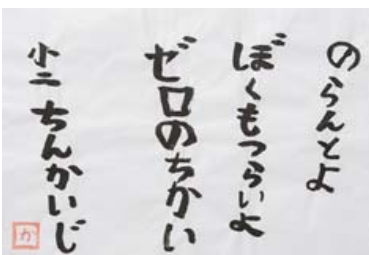 のらんとよ
ぼくもつらいよ
ゼロのちかい
小二 ちんかいじ
か